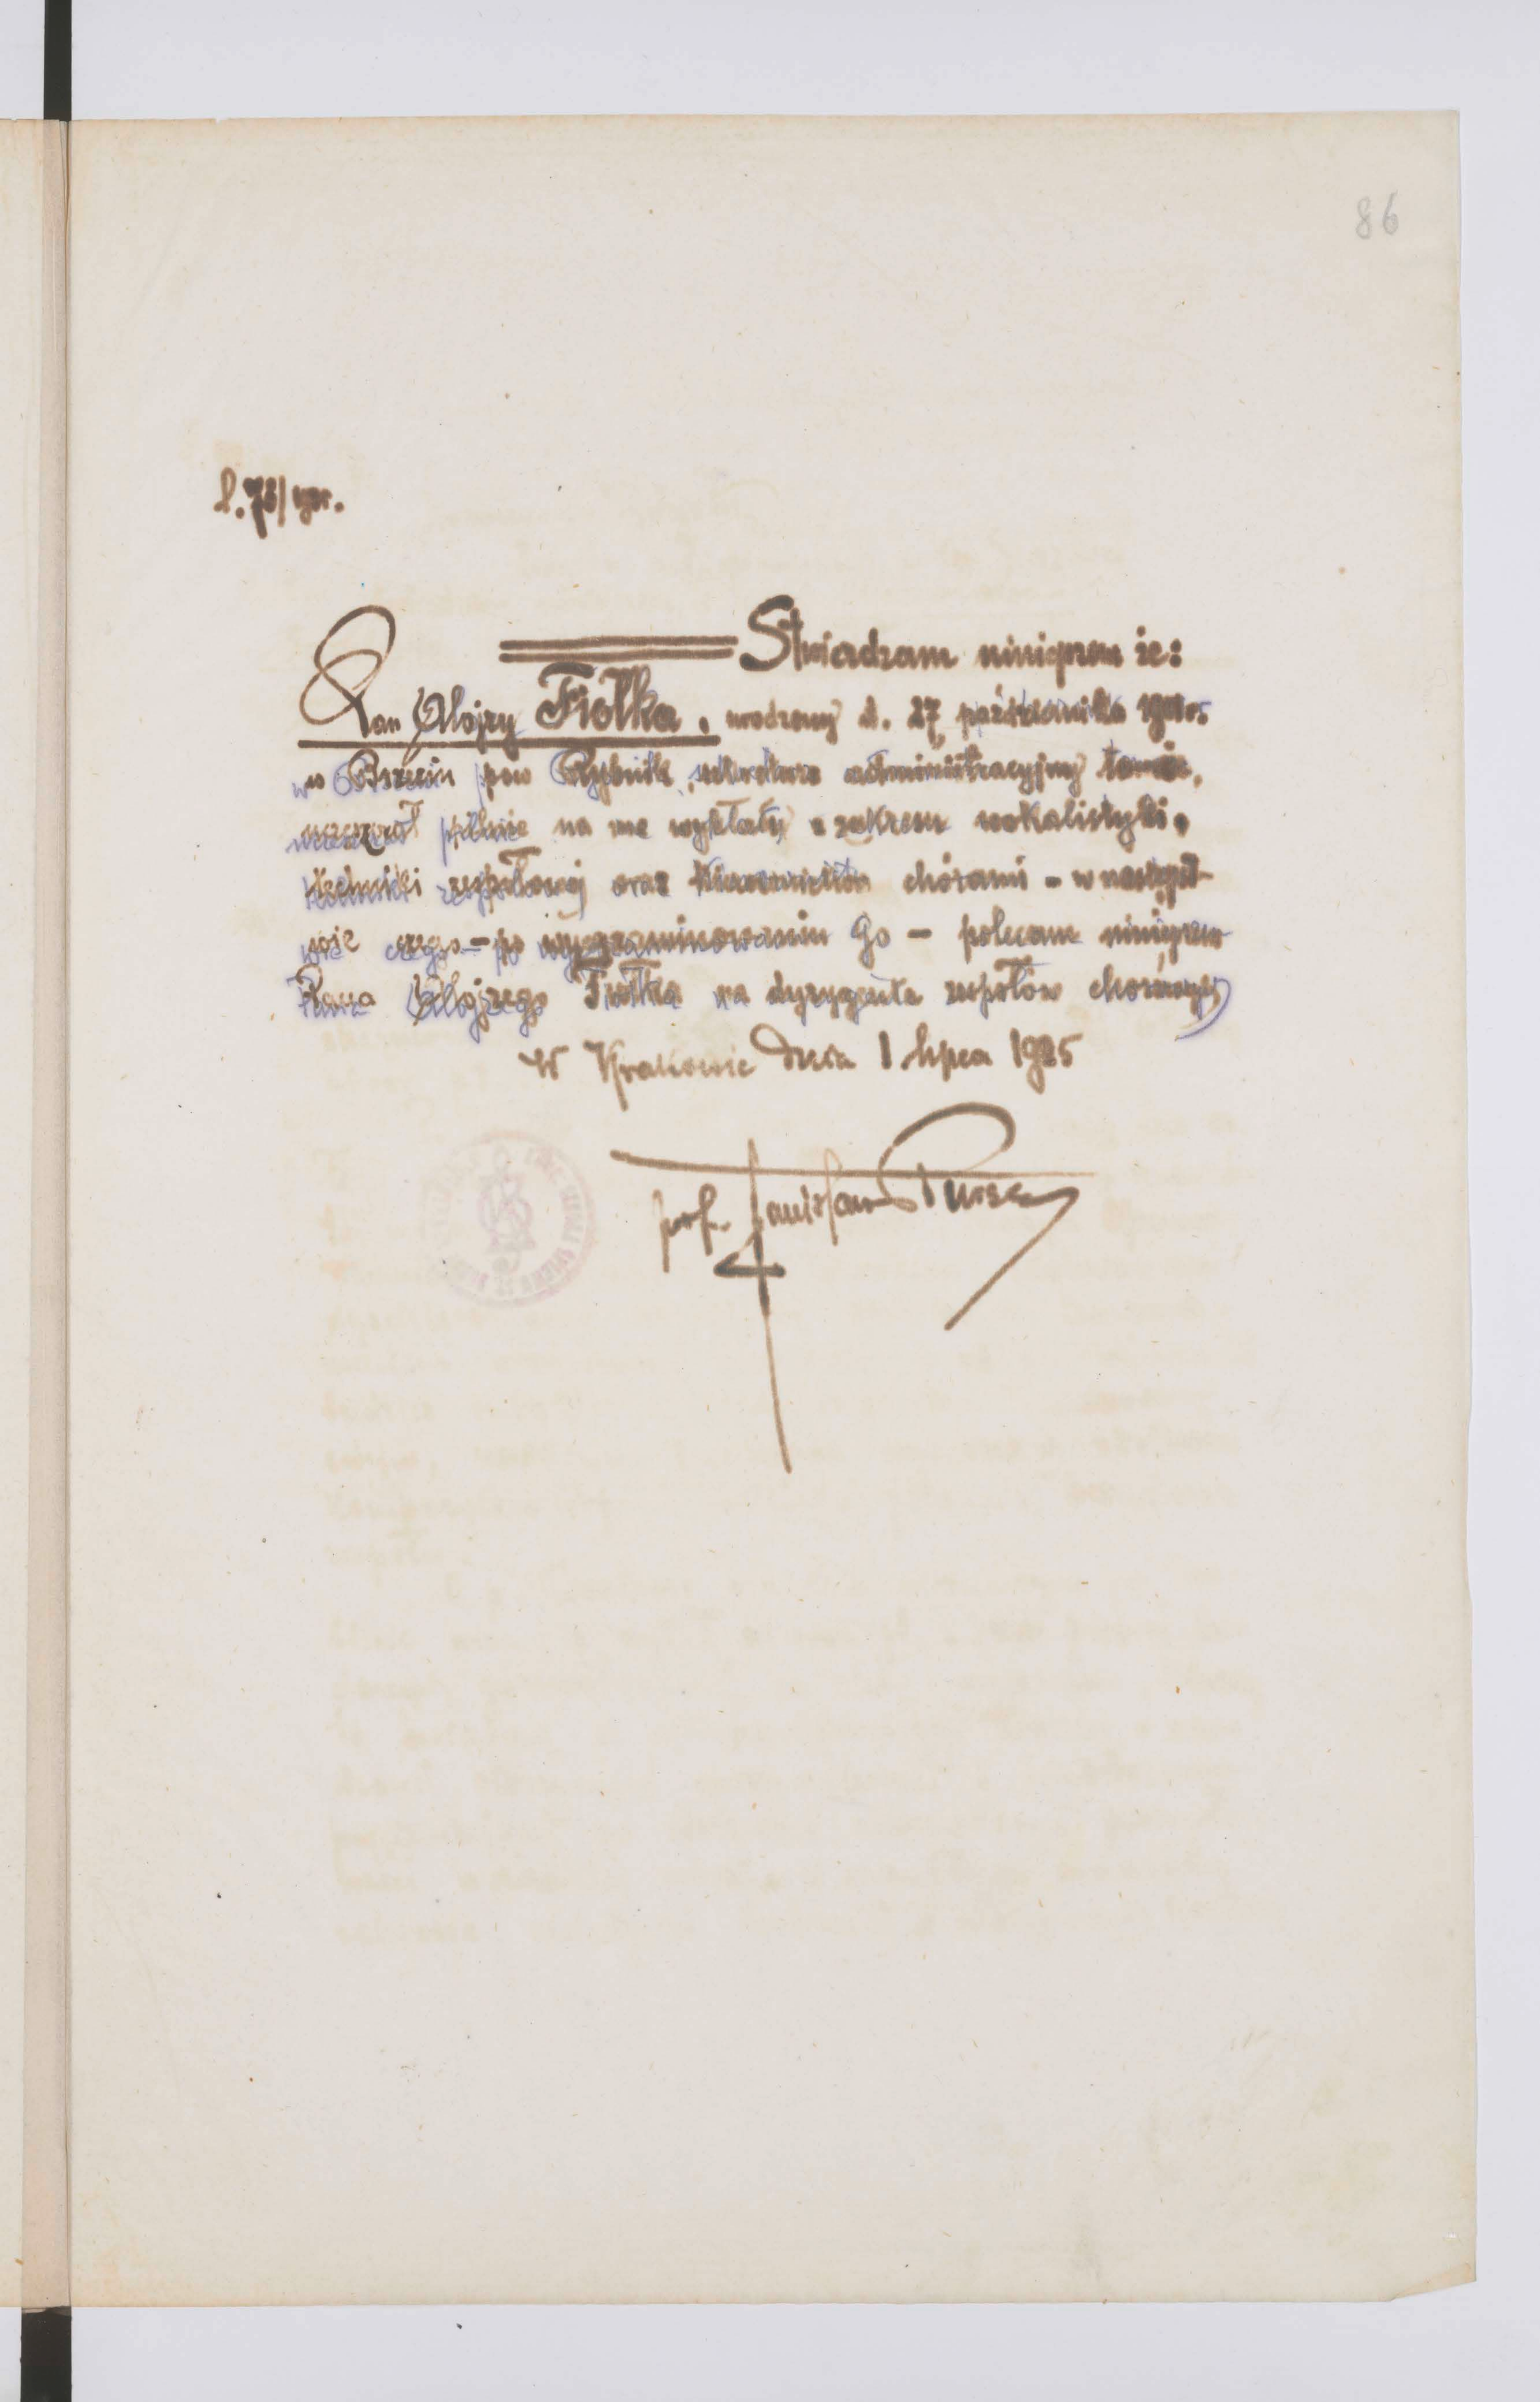 86
l. 78/
Stwierdzam niniejszem że:
Pan Alojzy Fiołka, urodzony d. 27 października
w pow Rybnik, administracyjny tamże,
uczęszczał pilnie na me wykłady z zakresu wokalistyki,
techniki zespołowej oraz chórami – w następst-
wie czego – po wyegzaminowaniu Go – polecam niniejszem
Pana Alojzego Fiołkę na dyrygenta zespołów
W Krakowie dnia 1 lipca 1925
prof.